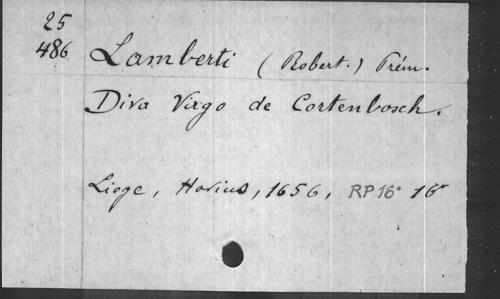 25
486
Lamberti (Robert.) Prém.
Diva Virgo de Cortenbosch.
Liege, Hovius, 1656, RP16° 16°